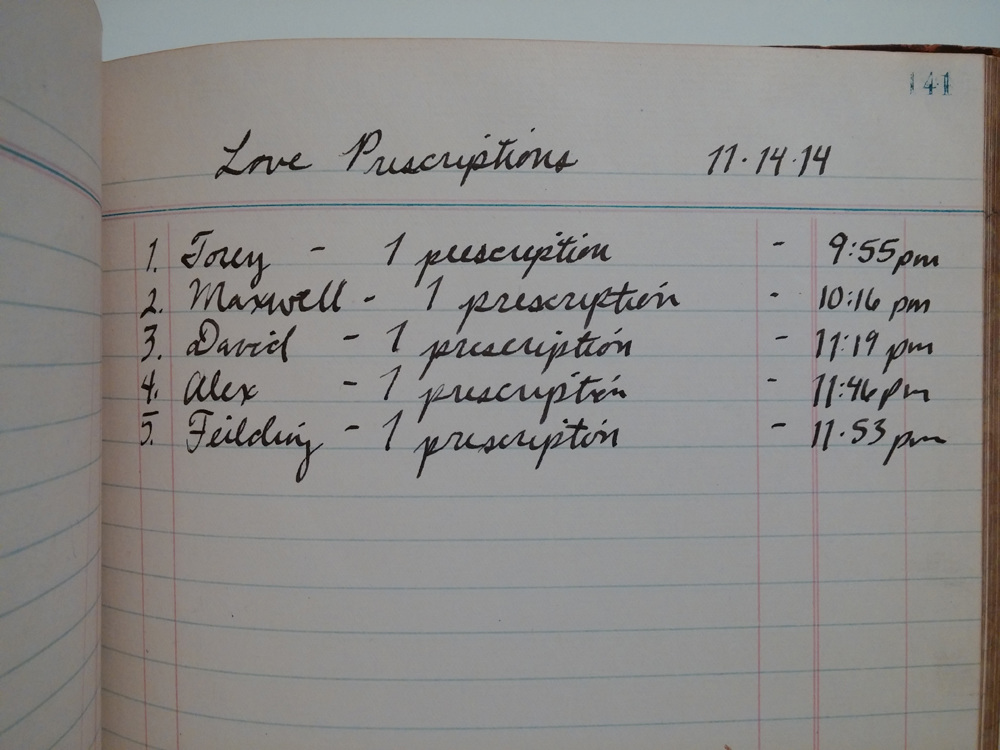 141
Love Prescriptions 11·14·14
1. Torey - 1 prescription - 9:55pm
2. Maxwell - 1 prescription - 10:16 pm
3. David - 1 prescription - 11:19 pm
4. Alex - 1 prescription - 11:46pm
5. Feilding - 1 prescription - 11:53 pm